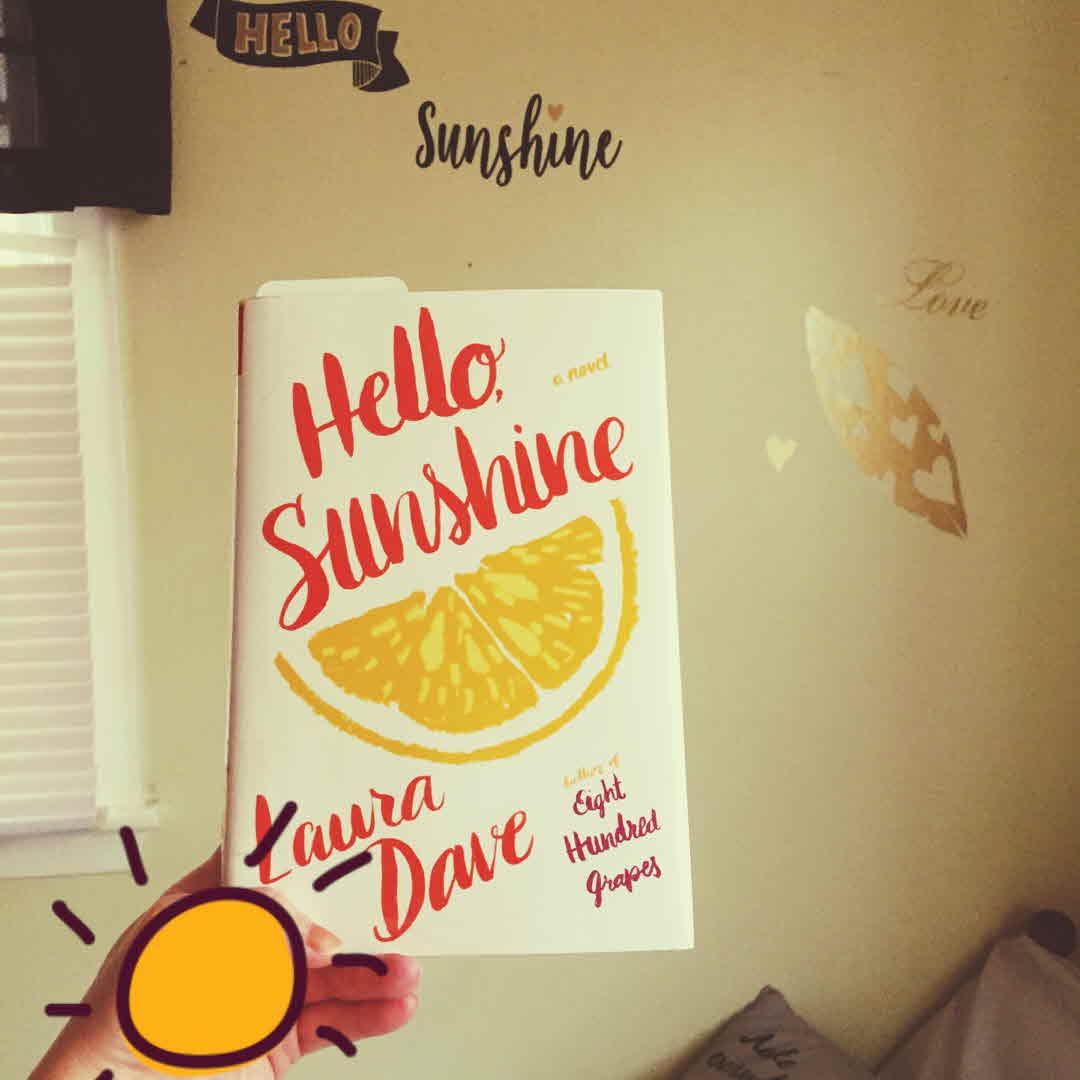 HELLO
Sunshine
Love
Hello,
a novel
Sunshine
Laura
Dave
author of
Eight
Hundred
Grapes